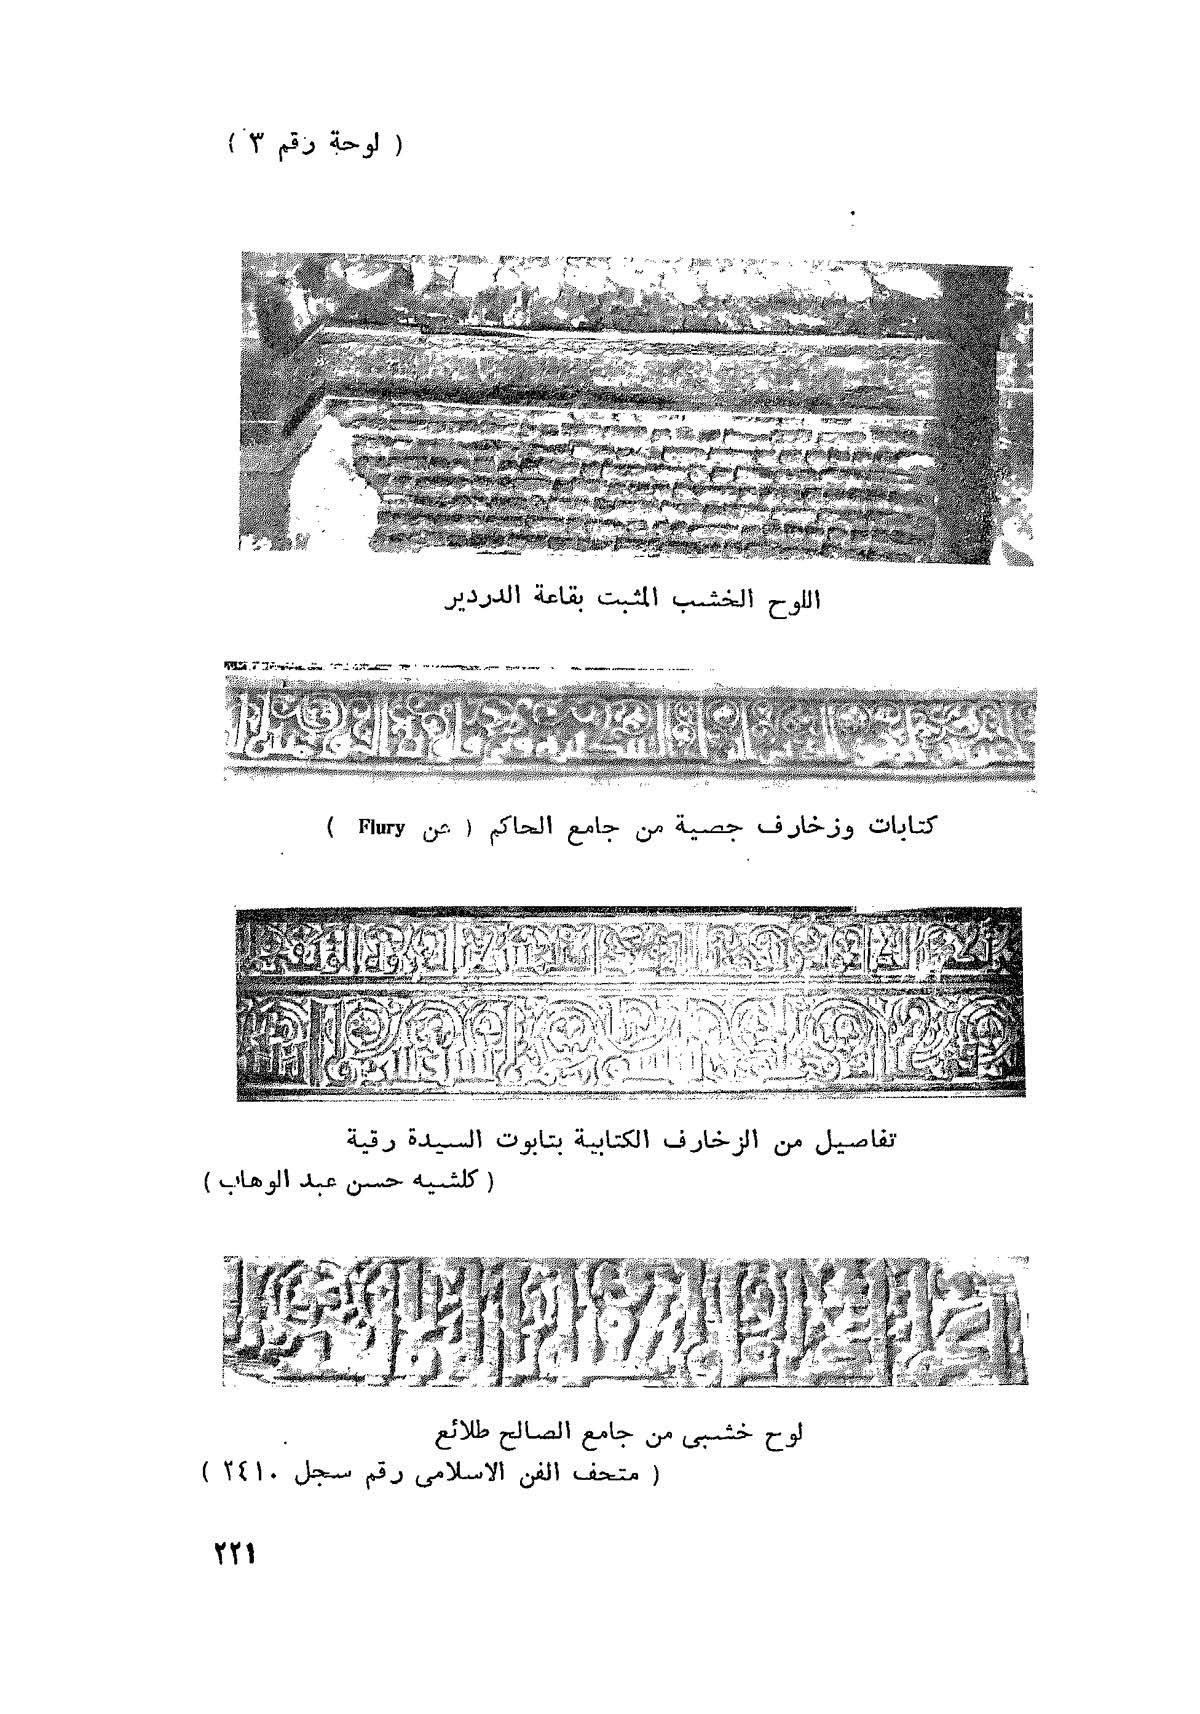 ( لوحة رقم ٣ )
اللوح الخشب المثبت بقاعة الدردير
كتابات وزخارف جصية من جامع الحاكم ( عن Flury )
تفاصيل من الزخارف الكتابية بتابوت السيدة رقية
( كلشيه حسن عبد الوهاب )
لوح خشبى من جامع الصالح طلائع
( متحف الفن الاسلامى رقم سجل ٢٤١٠ )
٢٢١